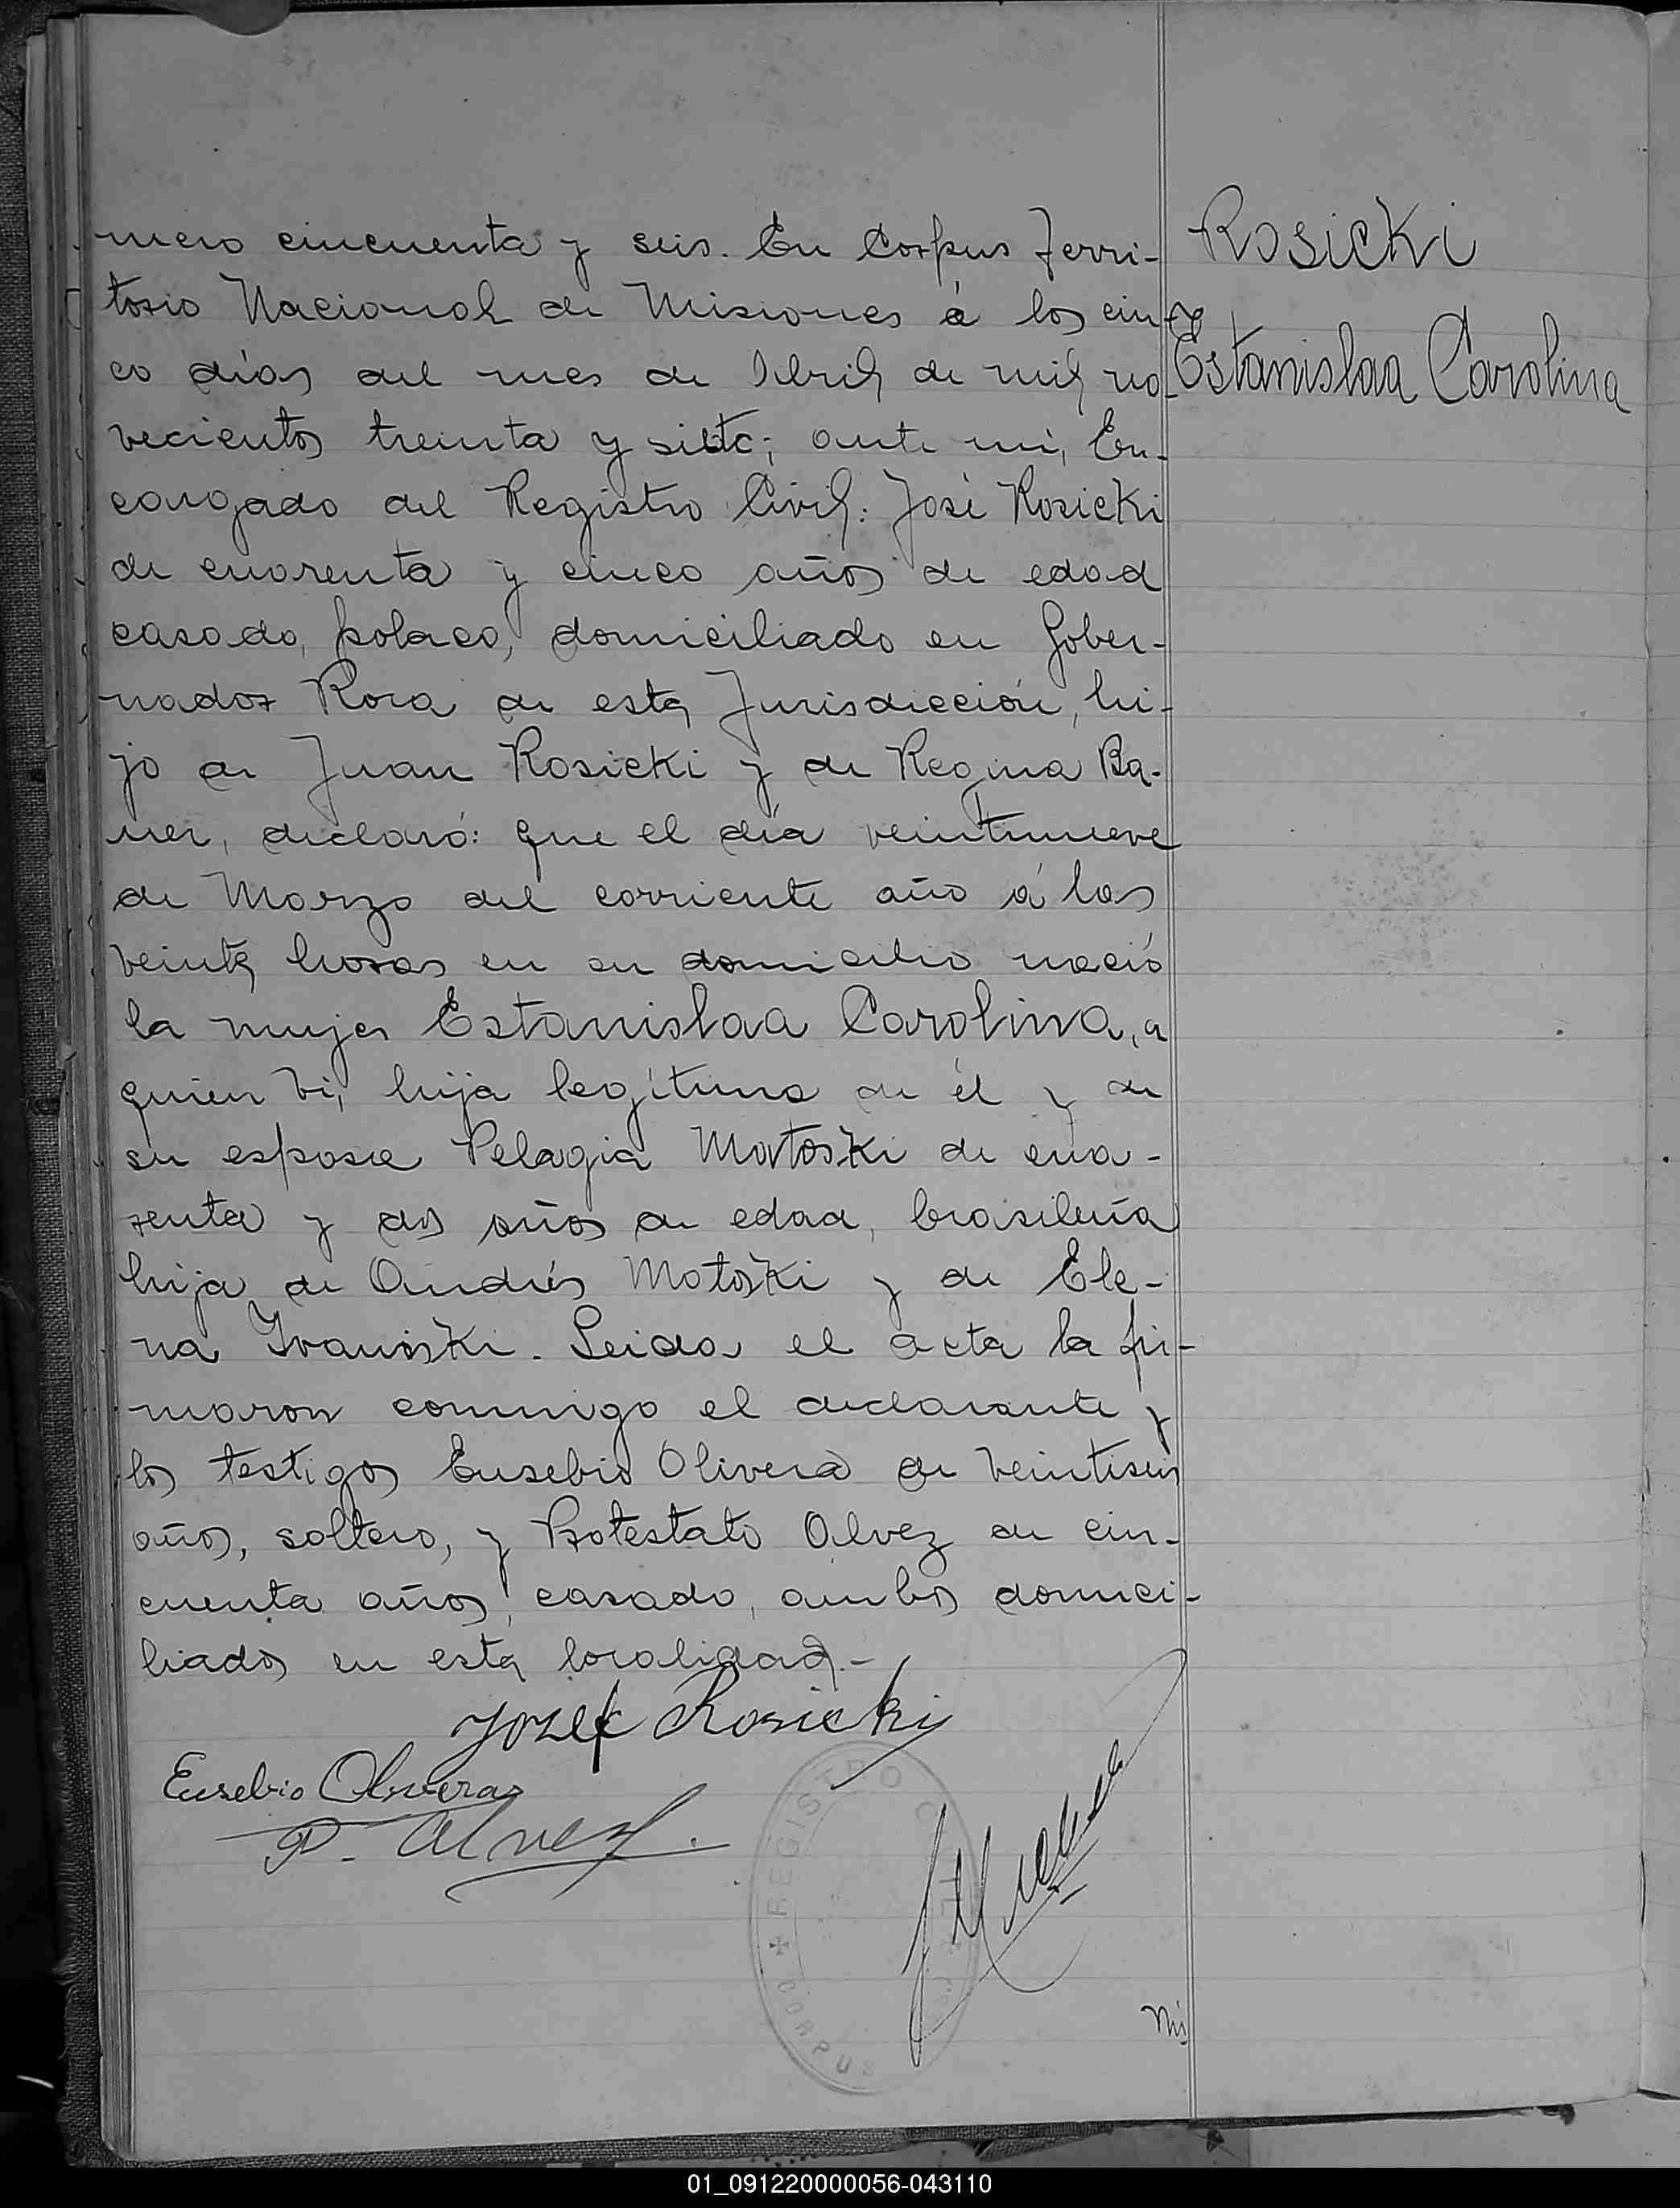 mero cincuenta y seis. En Corpus Terri-
torio Nacional de Misiones á los cin-
co días del mes de Abril de mil no-
vecientos treinta y siete; ante mi, En-
cargado del Registro Civil: José Rosicki
de cuarenta y cinco años de edad
casado, polaco, domiciliado en Gober-
nador Roca de esta Jurisdicción, hi-
jo de Juan Rosicki y de Regina Ba-
uer, declaró: Que el día veintinueve
de Marzo del corriente año á las
veinte horas en su domicilio nació
la mujer Estanislaa Carolina, a
quien vi, hija legítima de él y de
su esposa Pelagia Matoski de cua-
renta y dos años de edad, brasileña
hija de Andrés Matoski y de Ele-
na Ivaniski. Leida el acta la fir-
maron conmigo el declarante y
los testigos Eusebio Olivera de veintiseis
años, soltero, y Potestato Alvez de cin-
cuenta años, casado, ambos domici-
liados en esta localidad.-
Rosicki
Estanislaa Carolina
Jozef Rosicki
Eusebio Olivera
P. Alvez.
REGISTRO
CORPUS
01_091220000056-043110